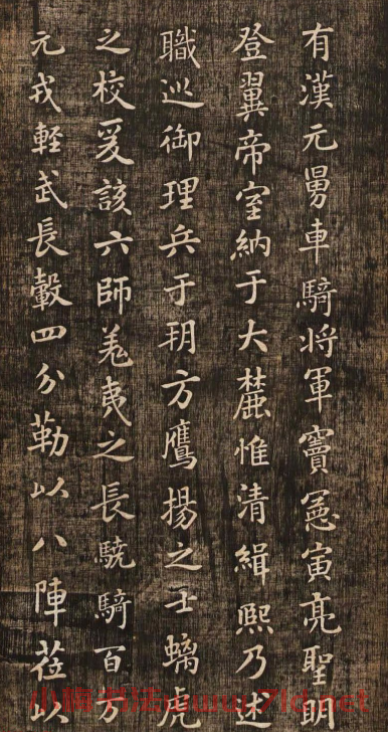 有漢元舅車騎将軍竇憲寅亮聖明
登翼帝室納于大麓惟清緝熙乃述
職巡御理兵于朔方鷹揚之士螭虎
之校爰該六師羌夷之長驍騎百万
元戎軽武長轂四分勒以八陣莅以